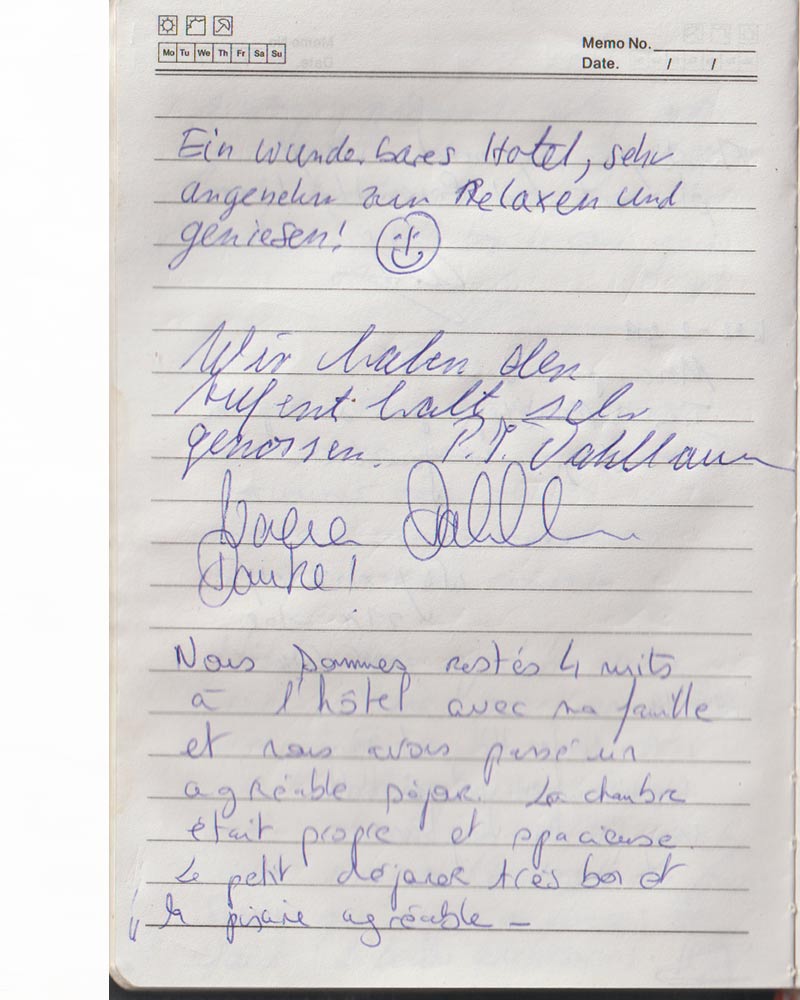 Mo Tu We Th Fr Sa Su
Memo No.
Date. / /
Ein wunderbares Hotel, sehr
angenehm zum Relaxen und
geniesen!
Wir haben den
Aufenthalt sehr
genossen. P.P. Dahlmann
Danke!
Nous sommes restés 4 nuits
à l'hôtel avec ma famille
et nous avons passé un
agréable séjour. La chambre
était propre et spacieuse.
Le petit déjeuner très bon et
la piscine agréable -